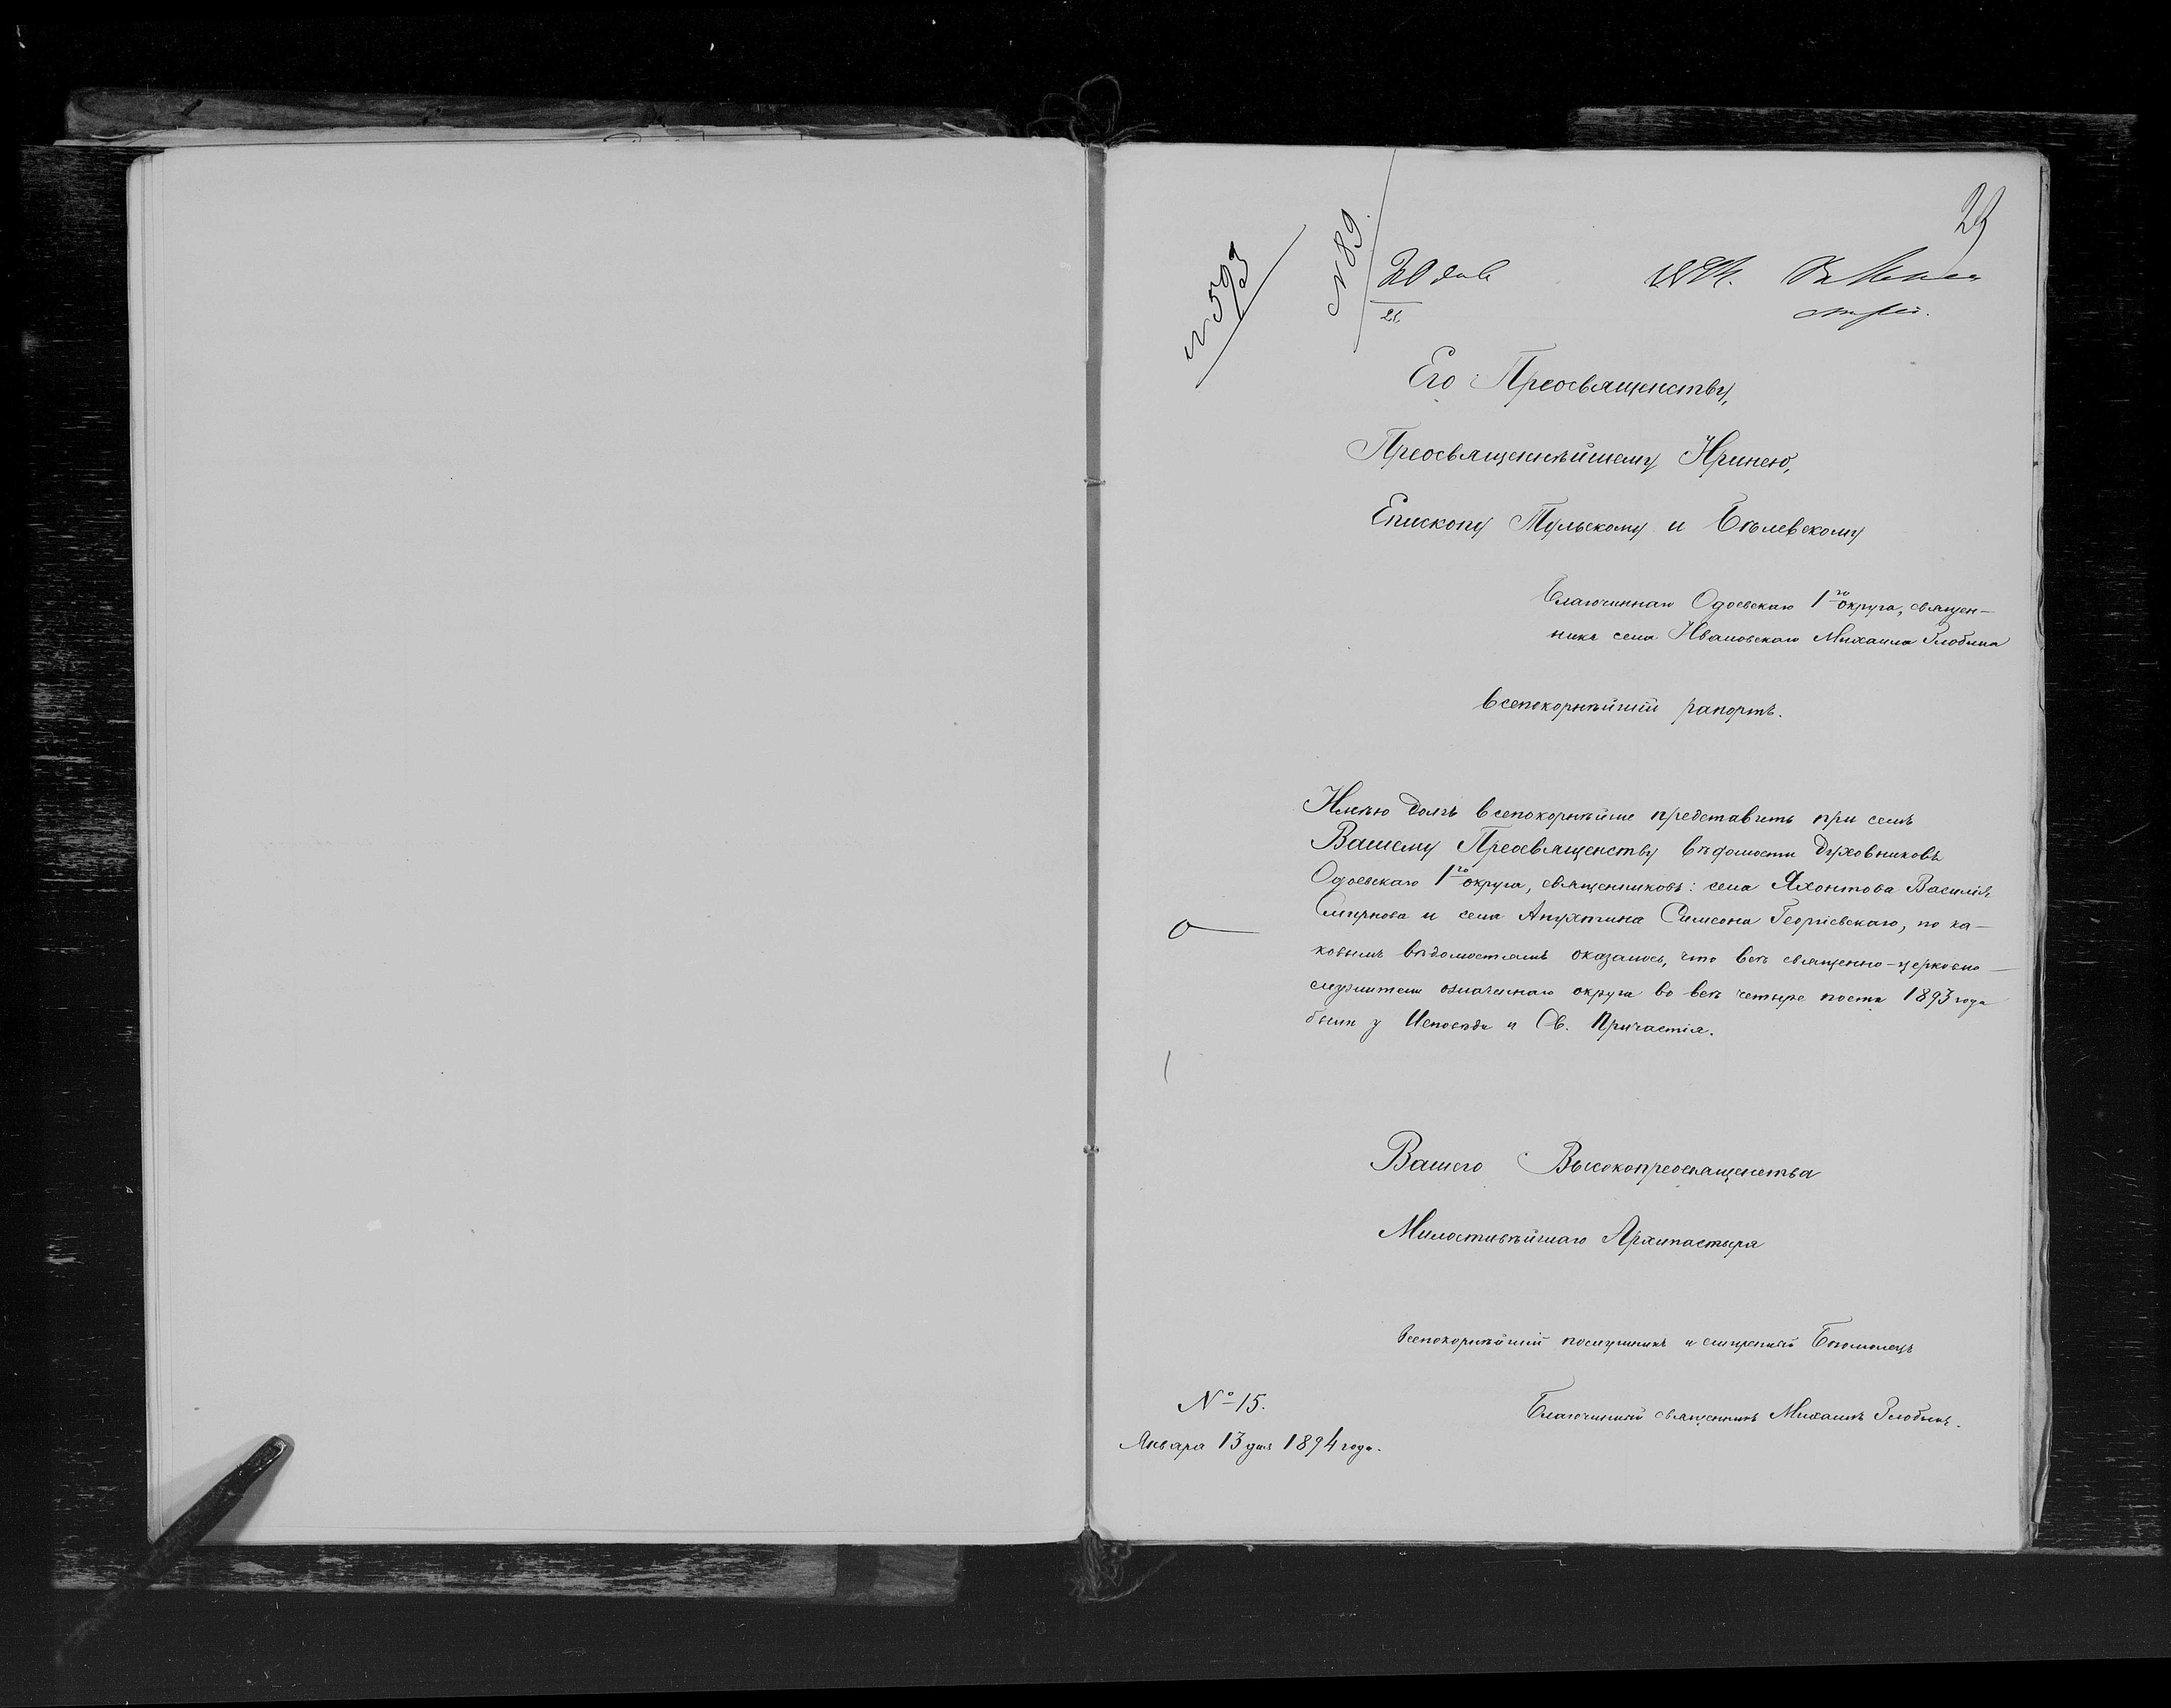 29
№ 593
№ 89.
20 янв 1894. Въ
21
Его Преосвященству,
Преосвященнѣйшему Иринею,
Епископу Тульскому и Бѣлевскому
Благочиннаго Одоевскаго 1го округа, священ-
ника села Ивановскаго Михаила Злобина
всепокорнѣйшій рапортъ.
Имѣю долгъ всепокорнѣйше представить при семъ
Вашему Преосвященству вѣдомости духовниковъ
Одоевскаго 1го округа, священниковъ: села Яхонтова Василія
Смирнова и села Апухтина Симеона Георгіевскаго, по ка-
ковымъ вѣдомостямъ оказалось, что всѣ священно-церковно-
служители означеннаго округа во всѣ четыре поста 1893 года
были у Исповѣди и Св. Причастія.
Вашего Высокопреосвященства
Милостивѣйшаго Архипастыря
Всепокорнѣйшій послушникъ и смиренный Богомолецъ
Благочинный священникъ Михаилъ Злобинъ.
№ 15.
Января 13 дня 1894 года.